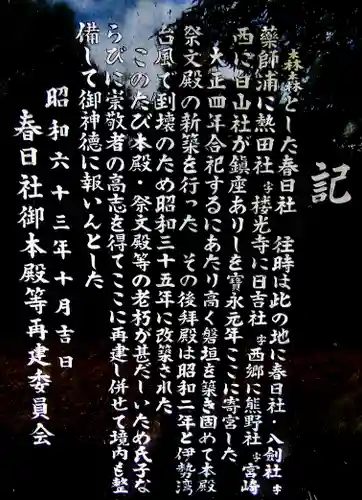 記
森森とした春日社　往時は此の地に春日社・入剣社字
薬師浦に熱田社字楼光寺に日吉社字西郷に熊野社字宮崎
西に白山社が鎮座ありしを寳永元年ここに寄宮した
大正四年合祀するにあたり高く磐垣を築き固めて本殿
祭文殿の新築を行った　その後拝殿は昭和二年と伊勢湾
台風で倒壊のため昭和三十五年に改築された
このたび本殿・祭文殿等の老朽が甚だしいため氏子な
らびに崇敬者の高志を得てここに再建し併せて境内も整
備して御神徳に報いんとした
昭和六十三年十月吉日
春日社御本殿等再建委員会